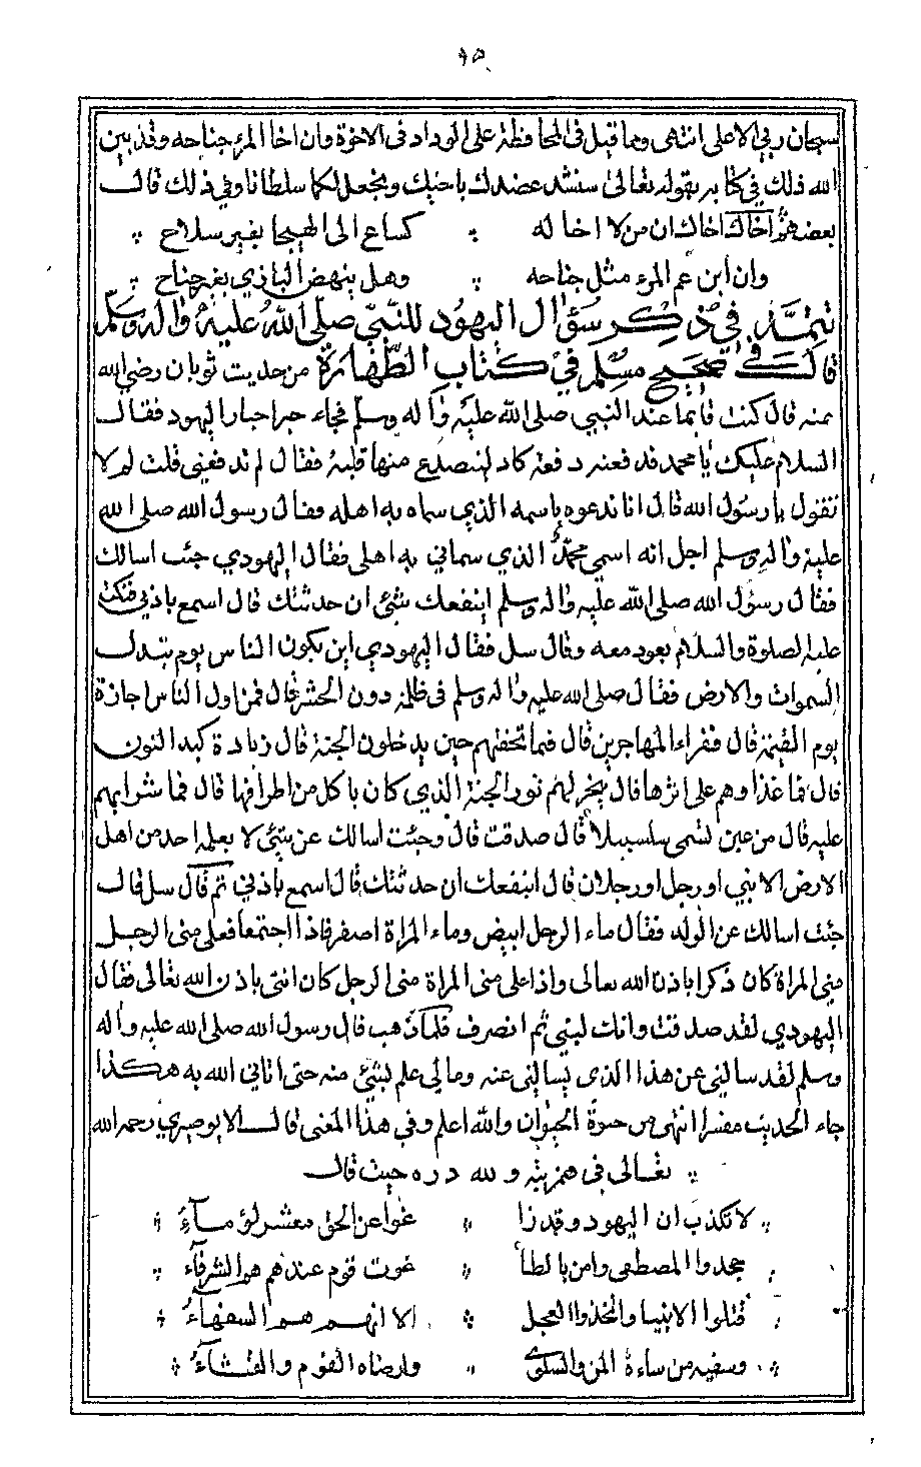 ٩٥
سبحان ربي الاعلى انتهى ومما قيل في المحافظة على الوداد في الاخوة وان اخا المرء جناحه وقد بين
الله ذلك في كتابه بقوله تعالى سنشد عضدك باخيك ونجعل لكما سلطانا وفي ذلك قال
بعضهم اخاك اخاك ان من لا اخا له كساع الى الهيجا بغير سلاح
وان ابن عم المرء مثل جناحه وهل ينهض البازي بغير جناح
تتمة في ذكر سؤال اليهود للنبي صلى الله عليه واله وسلم
قال في صحيح مسلم في كتاب الطهارة من حديث ثوبان رضي الله
عنه قال كنت قايما عند النبي صلى الله عليه وآله وسلم فجاء حبر احبار اليهود فقال
السلام عليك يا محمد فدفعته دفعة كاد ليتصدع منها قلبه فقال لم تدفعني قلت لم لا
تقول يا رسول الله قال انا ندعوه باسمه الذي سماه به اهله وقال رسول الله صلى الله
عليه واله وسلم اجل انه اسمي محمد الذي سماني به اهلي فقال اليهودي جئت اسالك
فقال رسول الله صلى الله عليه واله وسلم اينفعك شئ ان حدثتك قال اسمع باذني فنكت
عليه الصلوة والسلام بعود معه وقال سل فقال اليهودي اين يكون الناس يوم تبدل
السموات والارض فقال صلى الله عليه واله وسلم في ظلمة دون الحشر قال فمن اول الناس اجازة
يوم القيمة قال فقراء المهاجرين قال فما تحفتهم حين يدخلون الجنة قال زيادة كبد النون
قال فما غذاوهم على اثرها قال ينحر لهم ثور الجنة الذي كان ياكل من اطرافها قال فما شرابهم
عليه قال من عين تسمى سلسبيلا قال صدقت قال وجئت اسالك عن شئ لا يعلمه احد من اهل
الارض الا نبي او رجل او رجلان قال اينفعك ان حدثتك قال اسمع باذني ثم قال سل قال
جئت اسالك عن الولد فقال ماء الرجل ابيض وماء المراة اصفر فاذا اجتمعا فعلى مني الرجل
مني المراة كان ذكرا باذن الله تعالى واذا على مني المراة مني الرجل كان انثى باذن الله تعالى فقال
اليهودي لقد صدقت وانك لنبي ثم انصرف فلما ذهب قال رسول الله صلى الله عليه واله
وسلم لقد سالني عن هذا الذي يسالني عنه ومالي علم بشئ منه حتى اتاني الله به هكذا
جاء الحديث مفسرا انتهى من حيوة الحيوان والله اعلم وفي هذا المعنى قال الابوصيري رحمه الله
تعالى في همزيته ولله دره حيث قال
لا تكذب ان اليهود وقد زا غوا عن الحق معشر لؤمآءُ
جحدوا المصطفى وامن بالطا غوت قوم عندهم هم الشرفآء
قتلوا الانبيا واتخذوا العجل الا انهم هم السفهاءُ
وسفيه من ساءة المن والسلوى وارضاه الفوم والقثآءُ